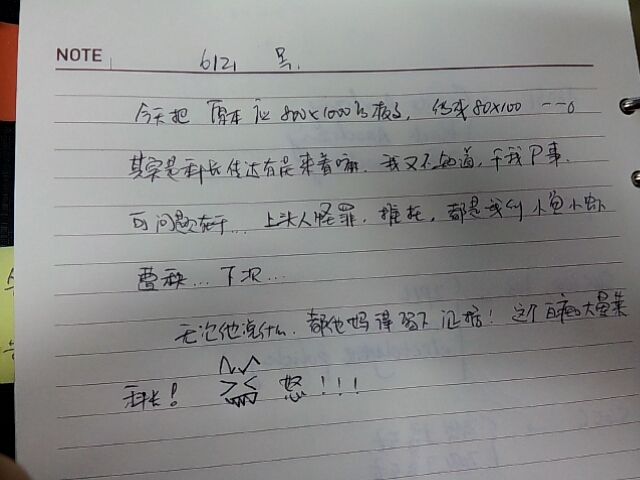 NOTE 6/21 号.
今天把 原本 is 800×1000的板子, 传成 80×100 ---。
其实是科长传达有误来着嘛. 我又不知道, 干我P事.
可问题在于... 上头人怪罪. 推托, 都是我们小鱼小虾
遭殃... 下次...
无论他说什么. 都他妈得留下证据! 这个白痴大呆
科长! 怒!!!